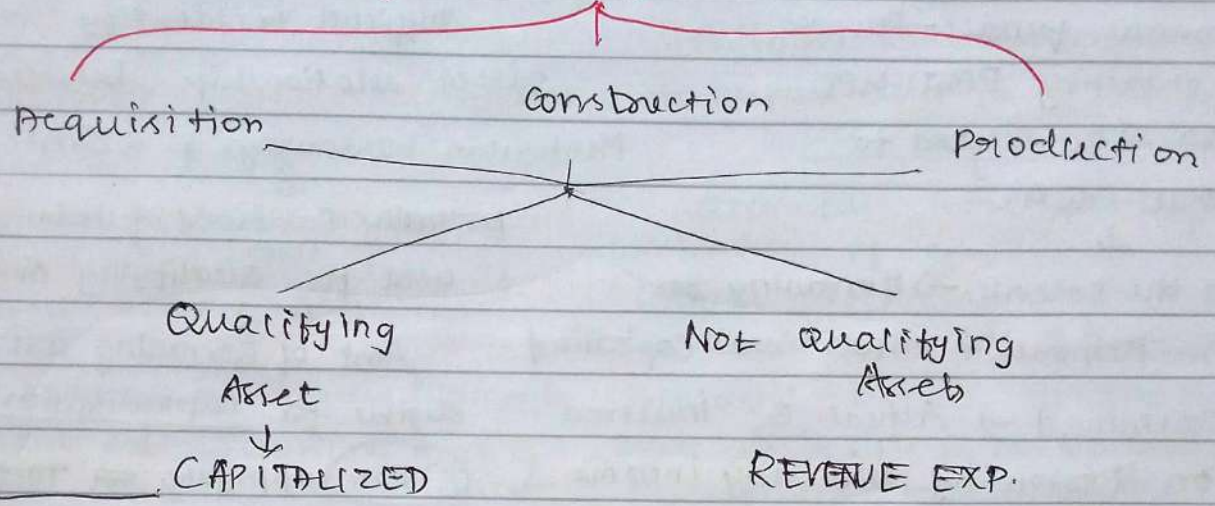 Acquisition
Construction
Production
Qualifying
Asset
CAPITALIZED
Not Qualifying
Asset
REVENUE EXP.